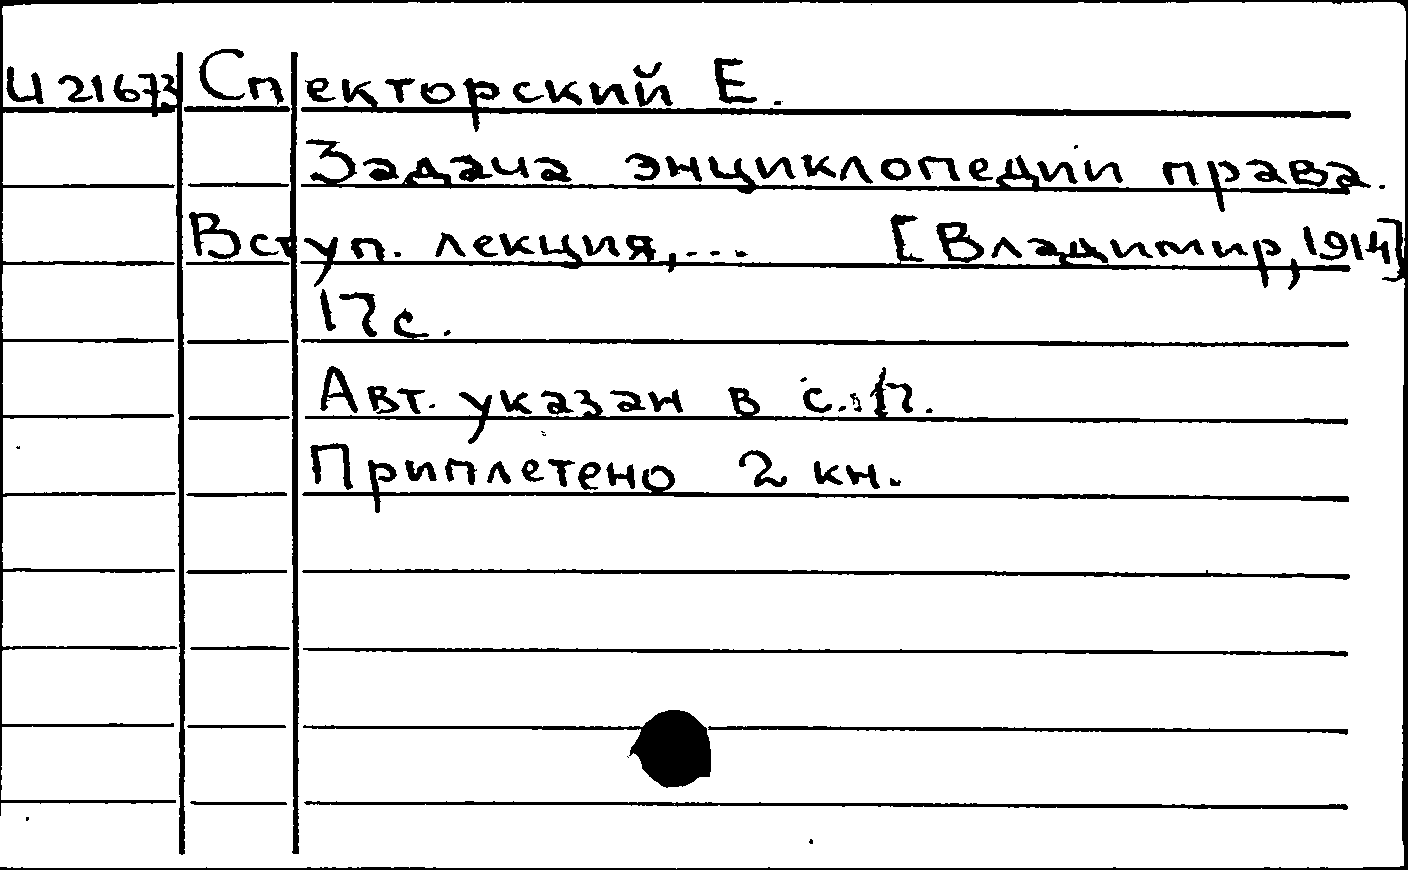 И 21673 Спекторский Е.
Задача энциклопедии права.
Вступ. лекция,... [Владимир, 1914]
17 с.
Авт. указан в с. 17.
Приплетено 2 кн.